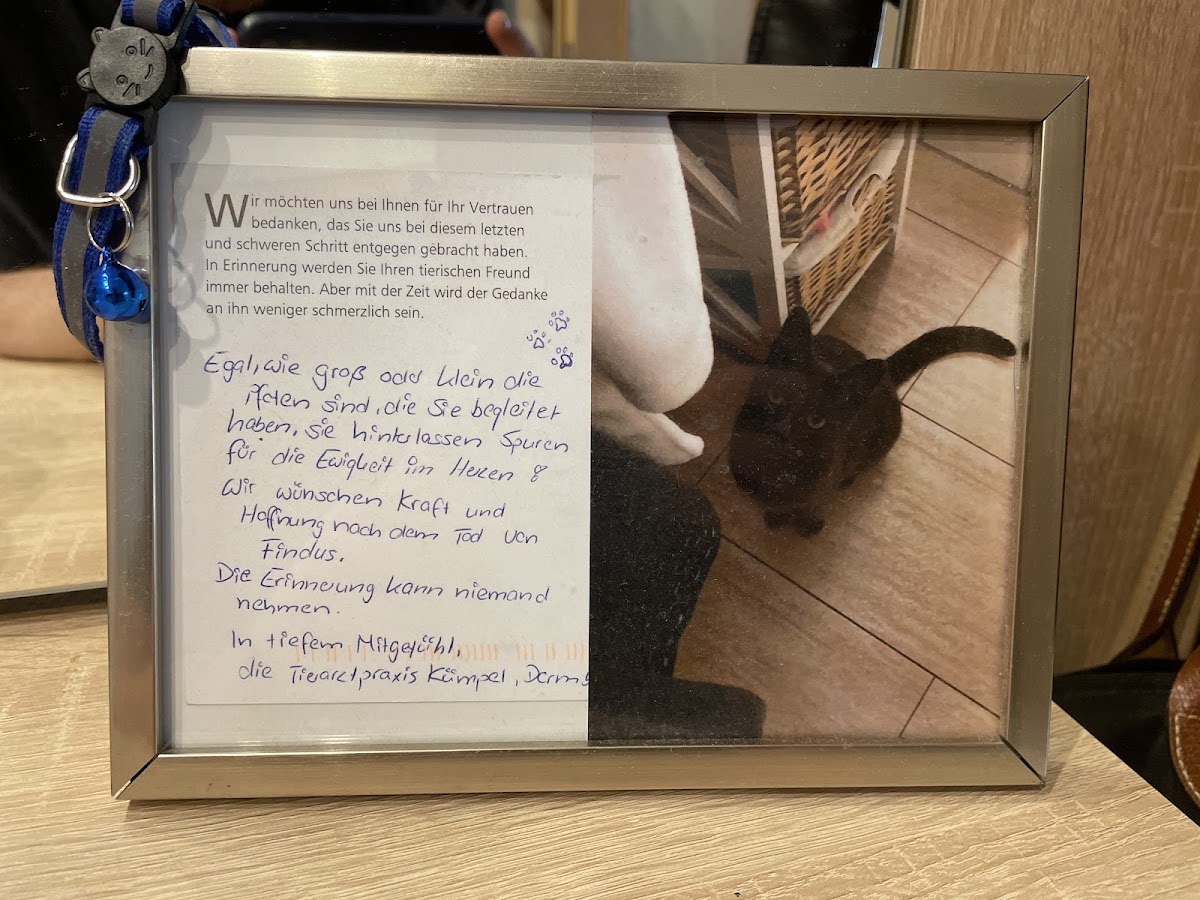 Wir möchten uns bei Ihnen für Ihr Vertrauen
bedanken, das Sie uns bei diesem letzten
und schweren Schritt entgegen gebracht haben.
In Erinnerung werden Sie Ihren tierischen Freund
immer behalten. Aber mit der Zeit wird der Gedanke
an ihn weniger schmerzlich sein.
Egal, wie groß oder klein die
Pfoten sind, die Sie begleitet
haben, sie hinterlassen Spuren
für die Ewigkeit im Herzen
Wir wünschen Kraft und
Hoffnung nach dem Tod von
Findus.
Die Erinnerung kann niemand
nehmen.
In tiefem Mitgefühl,
die Tierarztpraxis Kümpel,